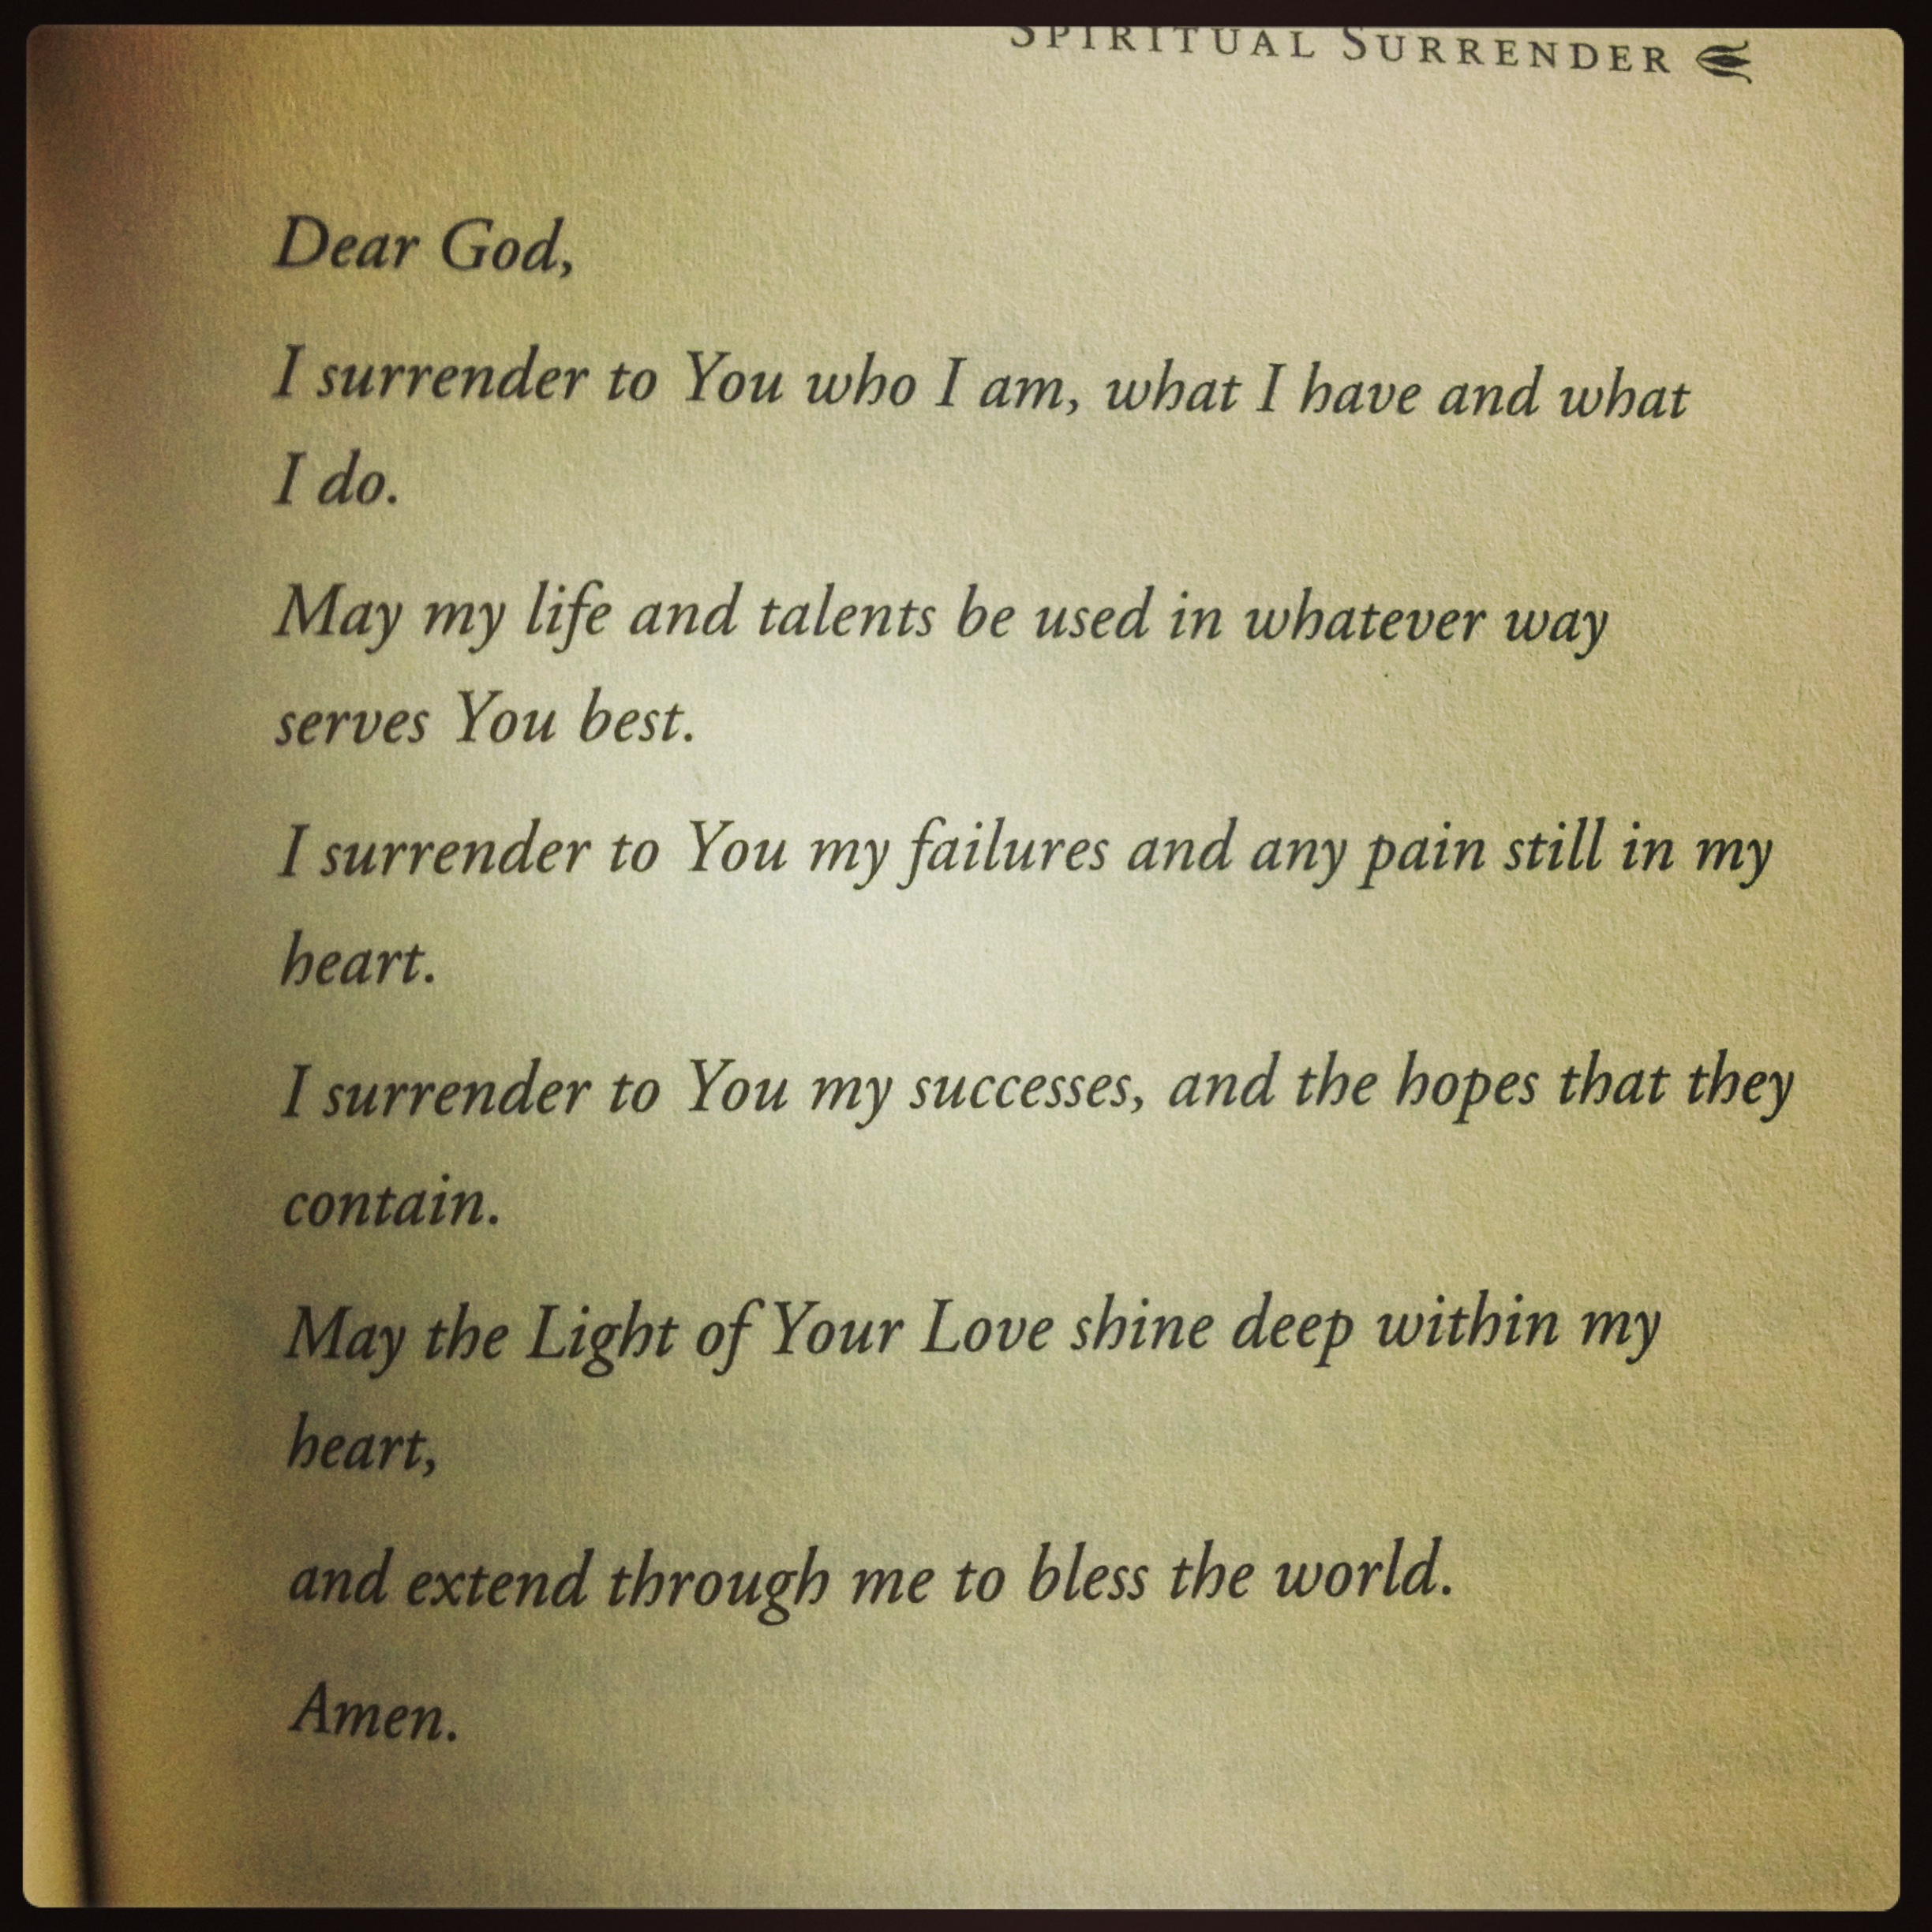 SPIRITUAL SURRENDER
Dear God,
I surrender to You who I am, what I have and what
I do.
May my life and talents be used in whatever way
serves You best.
I surrender to You my failures and any pain still in my
heart.
I surrender to You my successes, and the hopes that they
contain.
May the Light of Your Love shine deep within my
heart,
and extend through me to bless the world.
Amen.